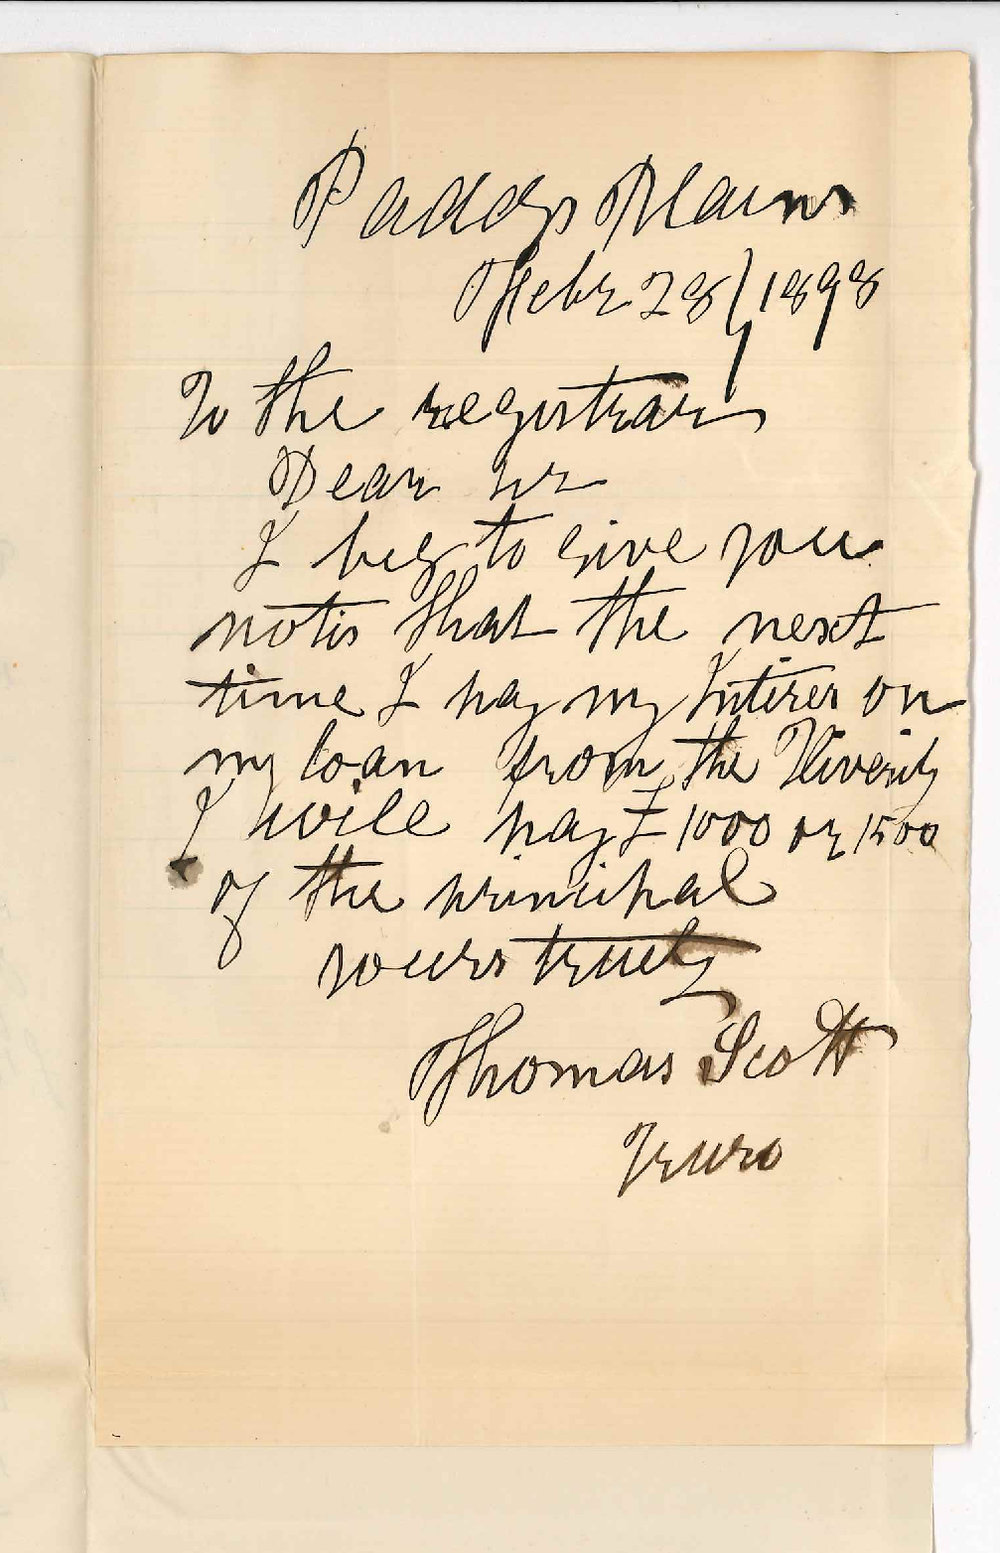 Paddys Plains
Febr 28/1898
To the registrar
Dear sir
I beg to give you
notis that the next
time I pay my Intirer on
my loan from the Uiversity
I will pay £ 1000 or 1500
of the principal
yours truely
Thomas Scott
Truro